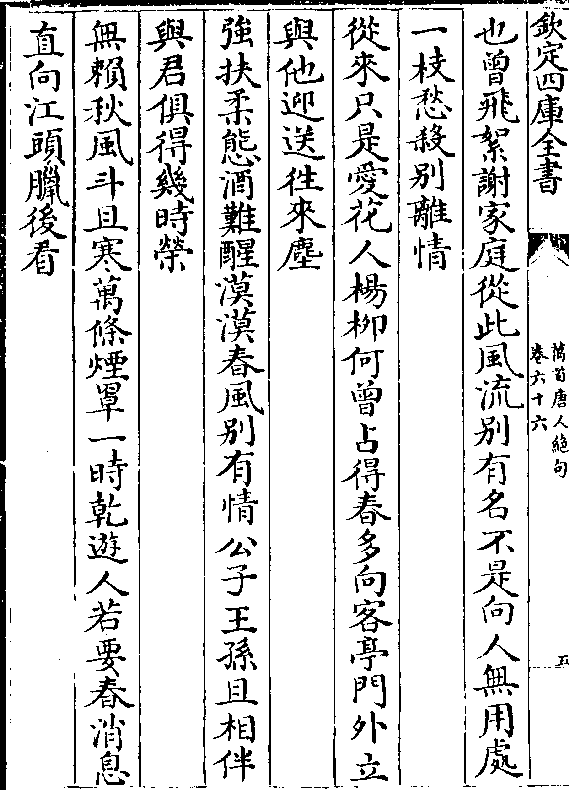 欽定四庫全書
萬首唐人絕句
卷六十六
五
也曾飛絮謝家庭從此風流别有名不是向人無用處
一枝愁殺别離情
從來只是愛花人楊柳何曾占得春多向客亭門外立
與他迎送徃來塵
強扶柔態酒難醒漠漠春風别有情公子王孫且相伴
與君俱得幾時榮
無賴秋風斗且寒萬條煙罩一時乾遊人若要春消息
直向江頭臘後看